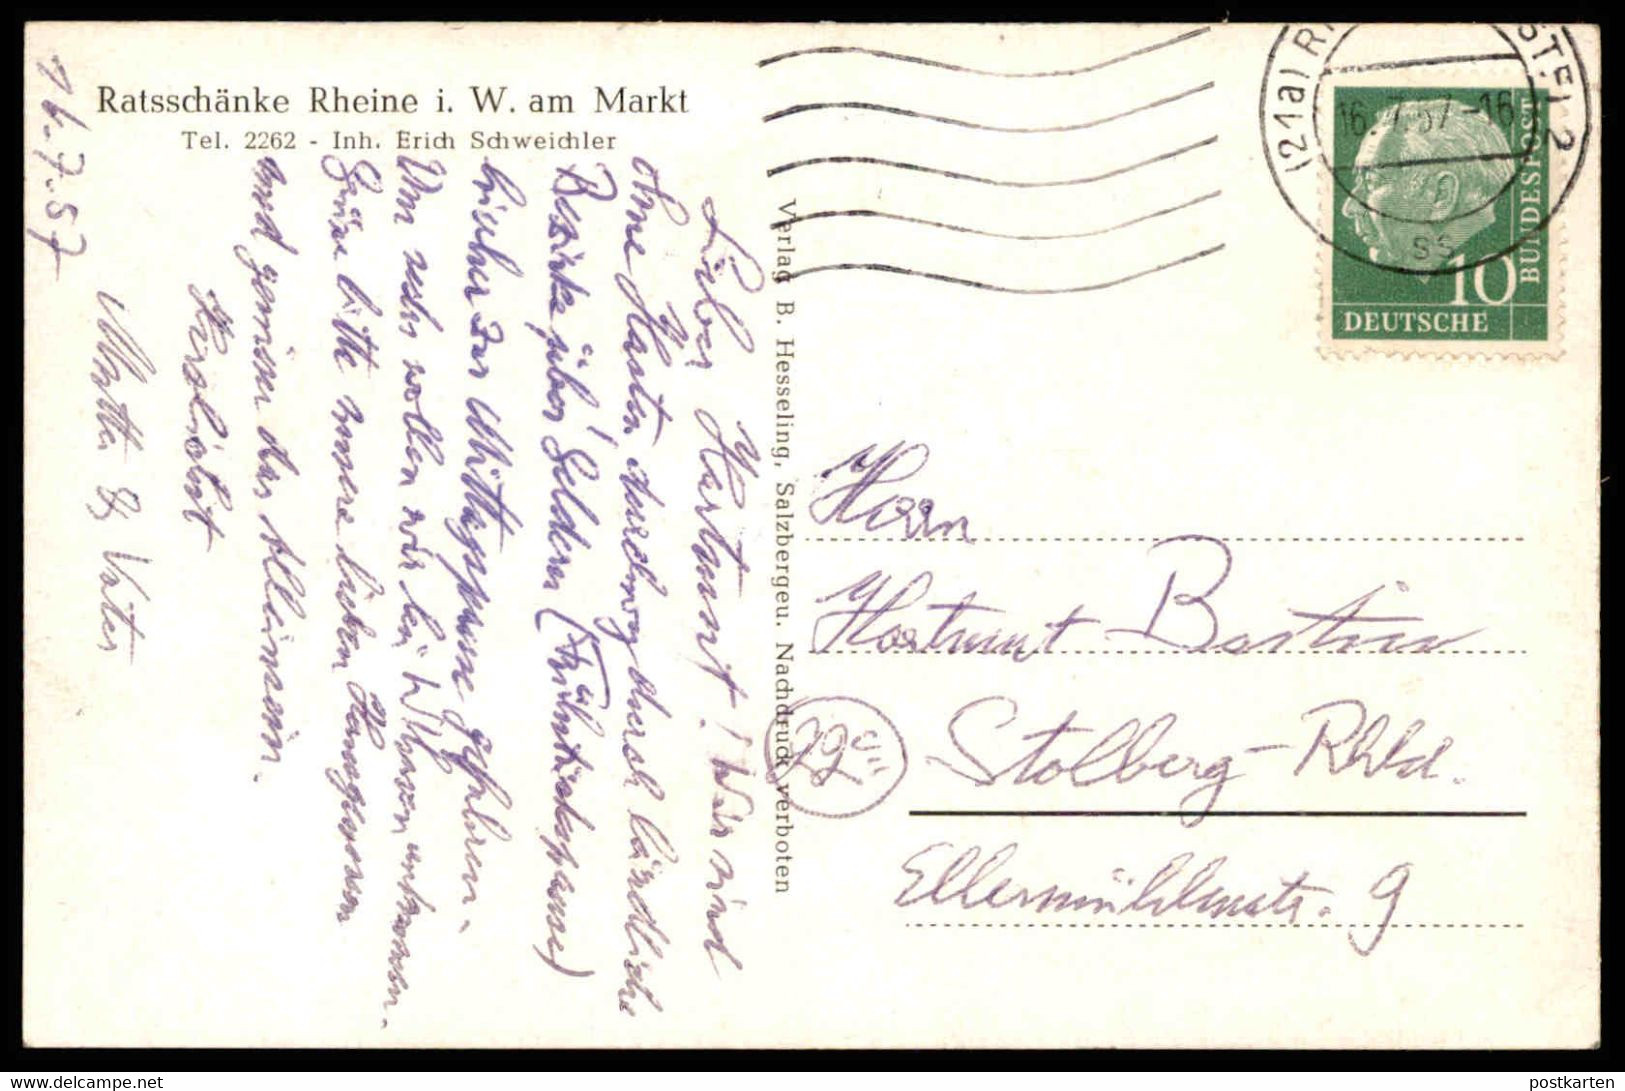 Ratsschänke Rheine i. W. am Markt
Tel. 2262 - Inh. Erich Schweichler
16.7.57
Lieber Hartmut! Wir sind
ohne Hasten durchweg durch ländliche
Bezirke über Geldern (Frühstückspause)
bisher zur Mittagspause gefahren.
Um wollen wir bei W'haven ankommen.
Grüße bitte unsere lieben Hausgenossen
und geniesse das Alleinsein.
Herzlichst
Mutter & Vater
Verlag B. Hesseling, Salzbergen. Nachdruck verboten
(21a) R
16.7.57-16
2
ss
10
DEUTSCHE
BUNDESPOST
Herrn
Hartmut Bastian
22c
Stolberg-Rhld.
Ellermühlenstr. 9
postkarten